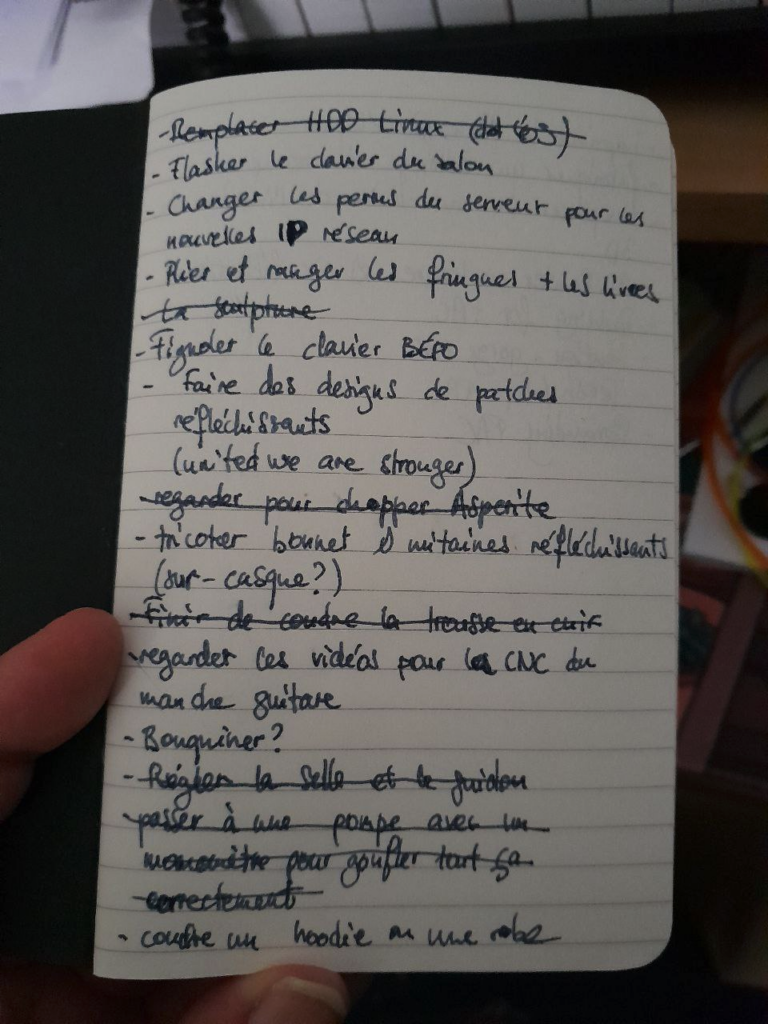 - Remplacer HDD Linux
- Flasher le clavier du salon
- Changer les perms du serveur pour les
nouvelles IP réseau
- Plier et ranger les fringues + les livres
- La sculpture
- Fignoler le clavier BÉPO
- Faire des designs de patches
réfléchissants
(united we are stronger)
- regarder pour chopper Asperite
- tricoter bonnet & mitaines réfléchissants
(sur-casque?)
- Finir de coudre la trousse en cuir
- regarder les vidéos pour la CNC du
manche guitare
- Bouquiner?
- Régler la selle et le guidon
- passer à une pompe avec un
manomètre pour gonfler tout ça
correctement
- coudre un hoodie ou une robe